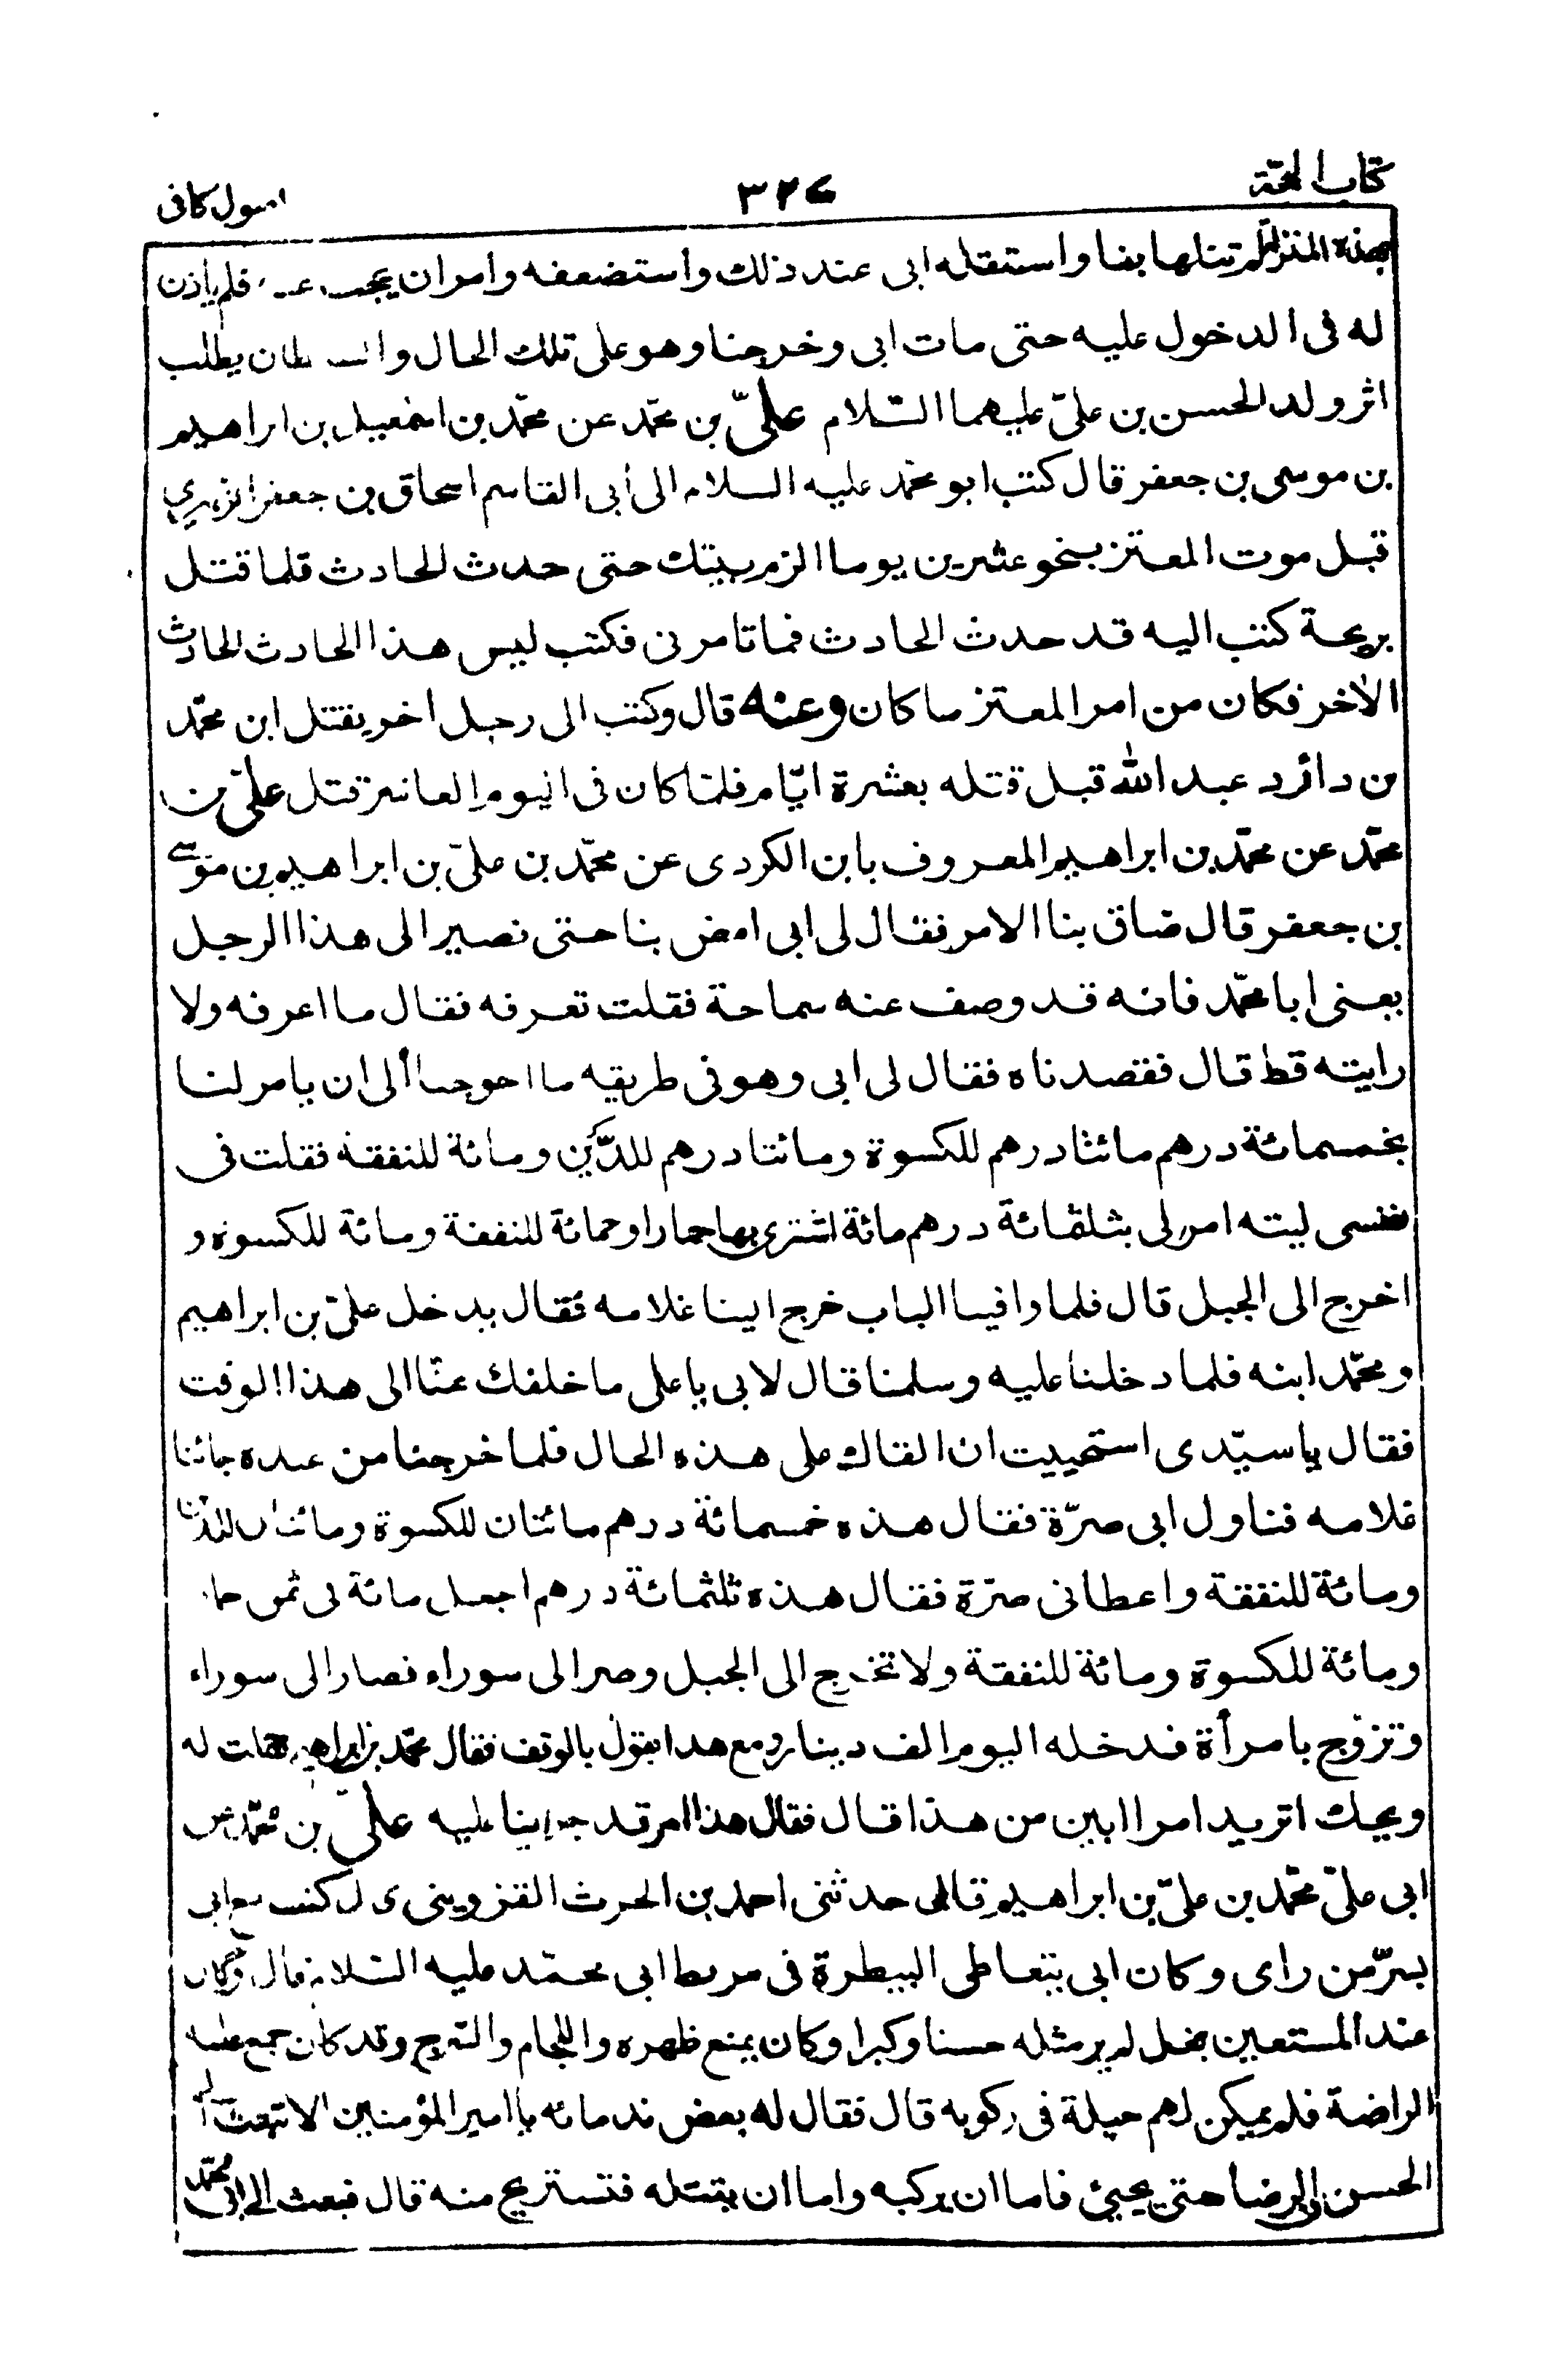 كتاب الحجّة
اصول كافى
بهذه المنزلة لم تنلها بنا واستقله ابى عند ذلك واستضعفه وامر ان يحجب عنه فلم ياذن
له فى الدخول عليه حتى مات ابى وخرجنا وهو على تلك الحال والسلطان يطلب
اثر ولد الحسن بن علىّ عليهما السّلام علىّ بن محمّد عن محمّد بن اسمعيل بن ابراهيم
بن موسى بن جعفر قال كتب ابو محمّد عليه السلام الى أبى القاسم اسحاق بن جعفر الزبيرى
قبل موت المعتز بنحو عشرين يوما الزم بيتك حتى حدث الحادث فلما قتل
بريحة كتب اليه قد حدث الحادث فما تامرنى فكتب ليس هذا الحادث الحادث
الاخر فكان من امر المعتز ما كان وعنه قال وكتب الى رجل اخر يقتل ابن محمّد
بن داؤد عبد الله قبل قتله بعشرة ايّام فلمّا كان فى اليوم العاشر قتل علىّ بن
محمّد عن محمّد بن ابراهيم المعروف بابن الكردى عن محمّد بن علىّ بن ابراهيم بن موسى
بن جعفر قال ضاق بنا الامر فقال لى ابى امض بنا حتى نصير الى هذا الرجل
يعنى ابا محمّد فانه قد وصف عنه سماحة فقلت تعرفه فقال ما اعرفه ولا
رايته قط قال فقصدناه فقال لى ابى وهو فى طريقه ما احوجنا ألى ان يامر لنا
بخمسمائة درهم مائتا درهم للكسوة ومائتا درهم للدّين ومائة للنفقة فقلت فى
نفسى ليته امر لى بثلثمائة درهم مائة اشترى بها حمارا ومائة للنفقة ومائة للكسوة و
اخرج الى الجبل قال فلما وافينا الباب خرج الينا غلامه فقال يدخل علىّ بن ابراهيم
ومحمّد ابنه فلما دخلنا عليه وسلمنا قال لابى يا على ما خلفك عنّا الى هذا الوقت
فقال يا سيّدى استحييت ان القاك على هذه الحال فلما خرجنا من عنده جائنا
غلامه فناول ابى صرّة فقال هذه خمسمائة درهم مائتان للكسوة ومائتان للدّين
ومائة للنفقة واعطانى صرّة فقال هذه ثلثمائة درهم اجعل مائة فى ثمن حمار
ومائة للكسوة ومائة للنفقة ولا تخرج الى الجبل وصر الى سوراء فصار الى سوراء
وتزوّج بامرأة فدخله اليوم الف دينار ومع هذا يقول بالوقف فقال محمّد بن ابراهيم فقلت له
ويحك اتريد امرا ابين من هذا قال فقال هذا امر قد جرينا عليه علىّ بن محمّد عن
ابى علىّ محمّد بن علىّ بن ابراهيم قال حدثنى احمد بن الحرث القزوينى قال كنت مع ابى
بسرّ من راى وكان ابى يتعاطى البيطرة فى مربط ابى محمّد عليه السّلام قال وكان
عند المستعين بغل لم ير مثله حسنا وكبرا وكان يمنع ظهره واللجام والسّرج وقد كان جمع عليه
الراضة فلم يمكن لهم حيلة فى ركوبه قال فقال له بعض ندمائه يا امير المؤمنين الا تبعث الى
الحسن ابن الرضا حتى يجيئ فاما ان يركبه واما ان يقتله فتستريح منه قال فبعث الى ابى محمّد